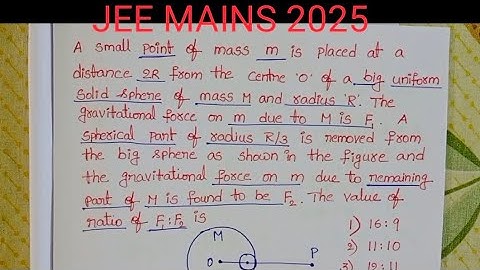 JEE MAINS 2025
A small point of mass m is placed at a
distance 2R from the centre 'O' of a big uniform
solid sphere of mass M and radius 'R'. The
gravitational force on m due to M is F₁. A
spherical part of radius R/3 is removed from
the big sphere as shown in the figure and
the gravitational force on m due to remaining
part of M is found to be F₂. The value of
ratio of F₁:F₂ is
1) 16:9
2) 11:10
3) 12:11
M
O
P